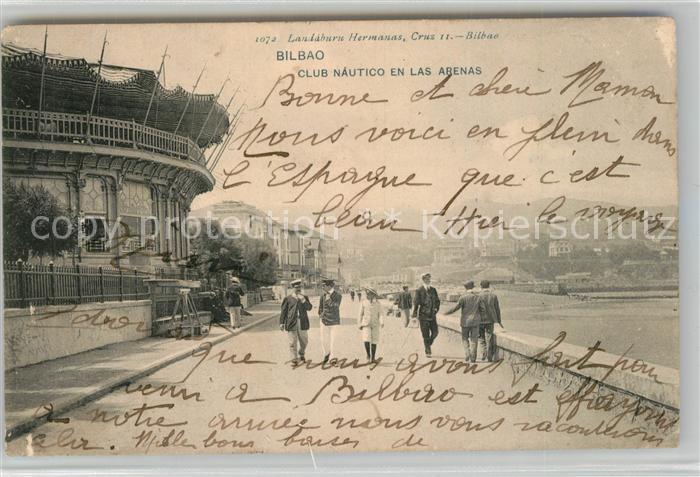 1072 Landáburu Hermanas, Cruz 11.—Bilbao
BILBAO
CLUB NÁUTICO EN LAS ARENAS
Bonne et chère Maman
Nous voici en plein dans
l'Espagne que c'est
beau Hier le voyage
que nous a fait pour
venir a Bilbao est effrayant
a notre arrivée nous vous raconterons
cela. Mille bons baisers de
copyright protection
copyright protection by Schutz